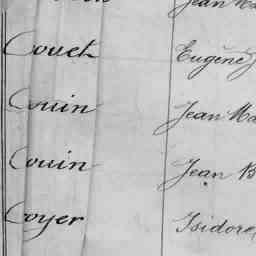 Jean Ma
Couet Eugène
Couin Jean Ma
Couin Jean B
Coyer Isidore